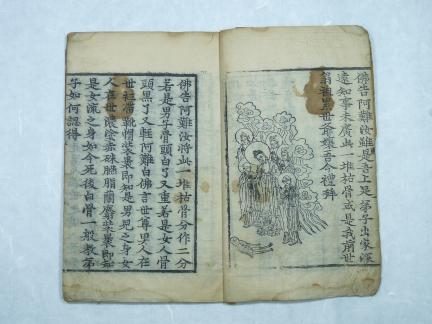 佛告阿難汝雖是吾上足弟子出家深
遠知事未廣此一堆枯骨或是我前世
翁祖累世爺孃吾今禮拜
佛告阿難汝將此一堆枯骨分作二分
若是男子骨頭白了又重若是女人骨
頭黑了又輕阿難白佛言世尊男人在
世衫帶靴帽裝裹即知是男兒之身女
人在世濃塗赤硃臙脂蘭麝裝裹即知
是女流之身如今死後白骨一般教弟
子如何認得